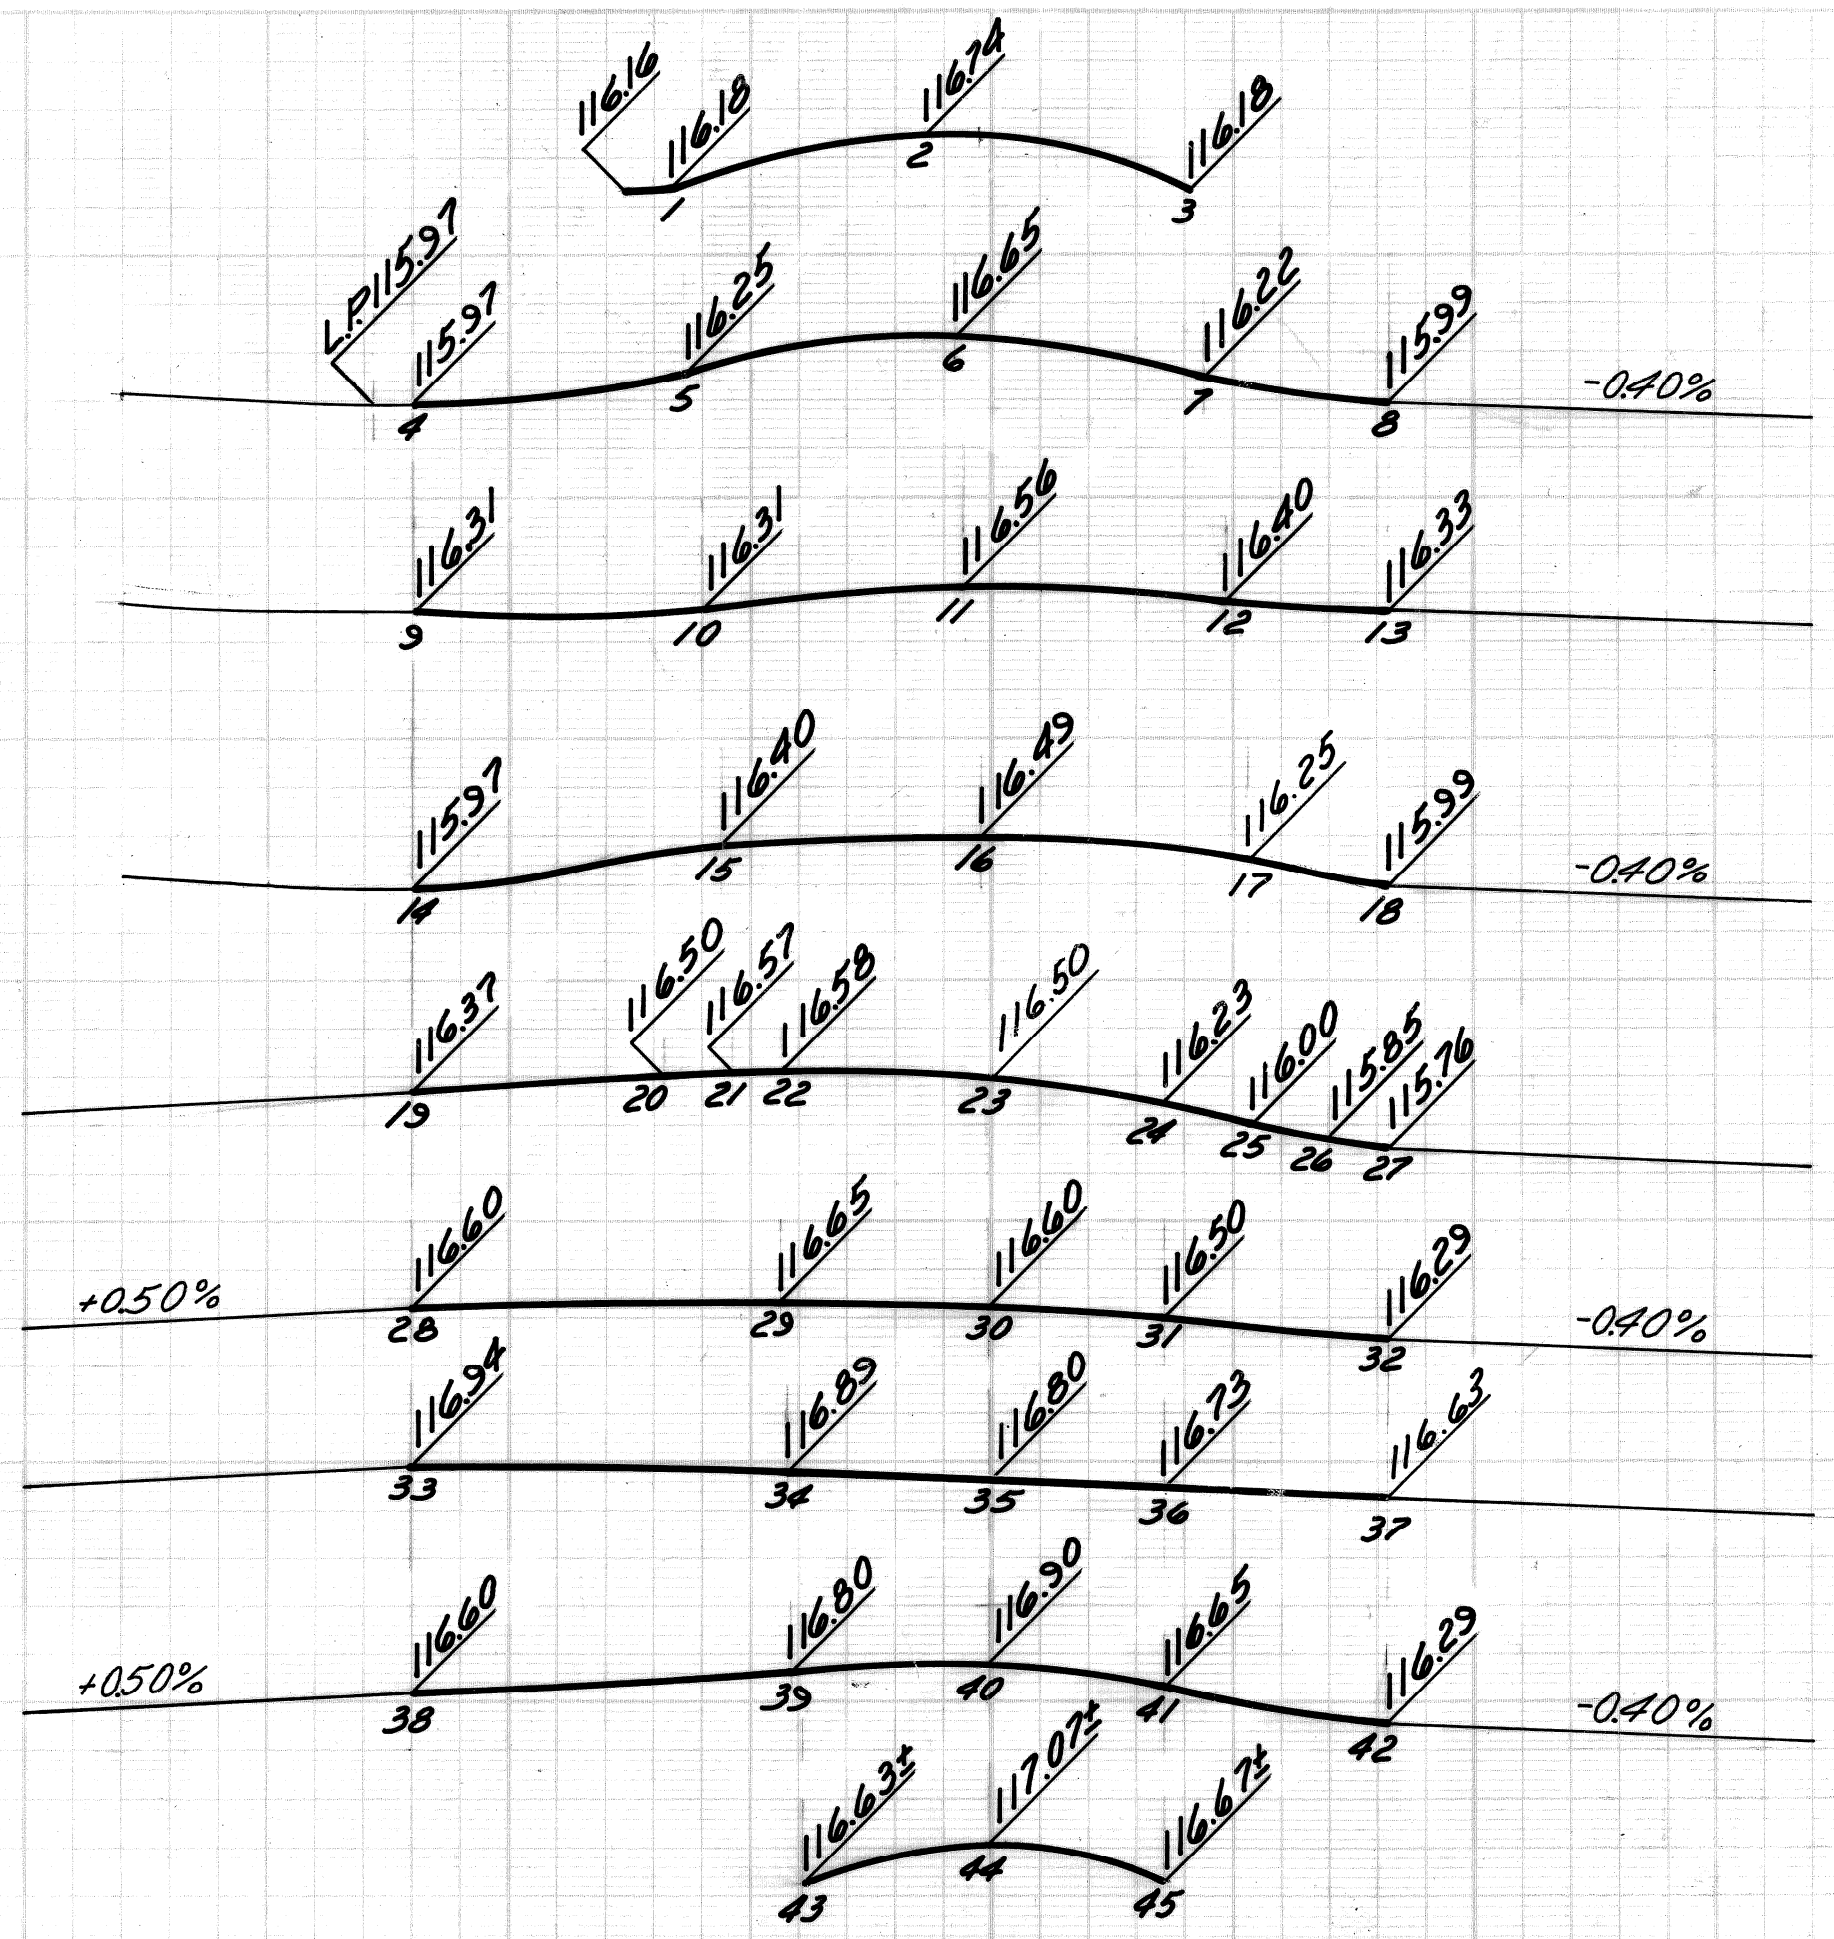 116.16 116.18 116.74 116.18
1 2 3
L.P. 115.97 115.97 116.25 116.65 116.22 115.99 -0.40%
4 5 6 7 8
116.31 116.31 116.56 116.40 116.33
9 10 11 12 13
115.97 116.40 116.49 116.25 115.99 -0.40%
14 15 16 17 18
116.37 116.50 116.57 116.58 116.50 116.23 116.00 115.85 115.76
19 20 21 22 23 24 25 26 27
+0.50% 116.60 116.65 116.60 116.50 116.29 -0.40%
28 29 30 31 32
116.94 116.89 116.80 116.73 116.63
33 34 35 36 37
+0.50% 116.60 116.80 116.90 116.65 116.29 -0.40%
38 39 40 41 42
116.63± 117.07± 116.67±
43 44 45